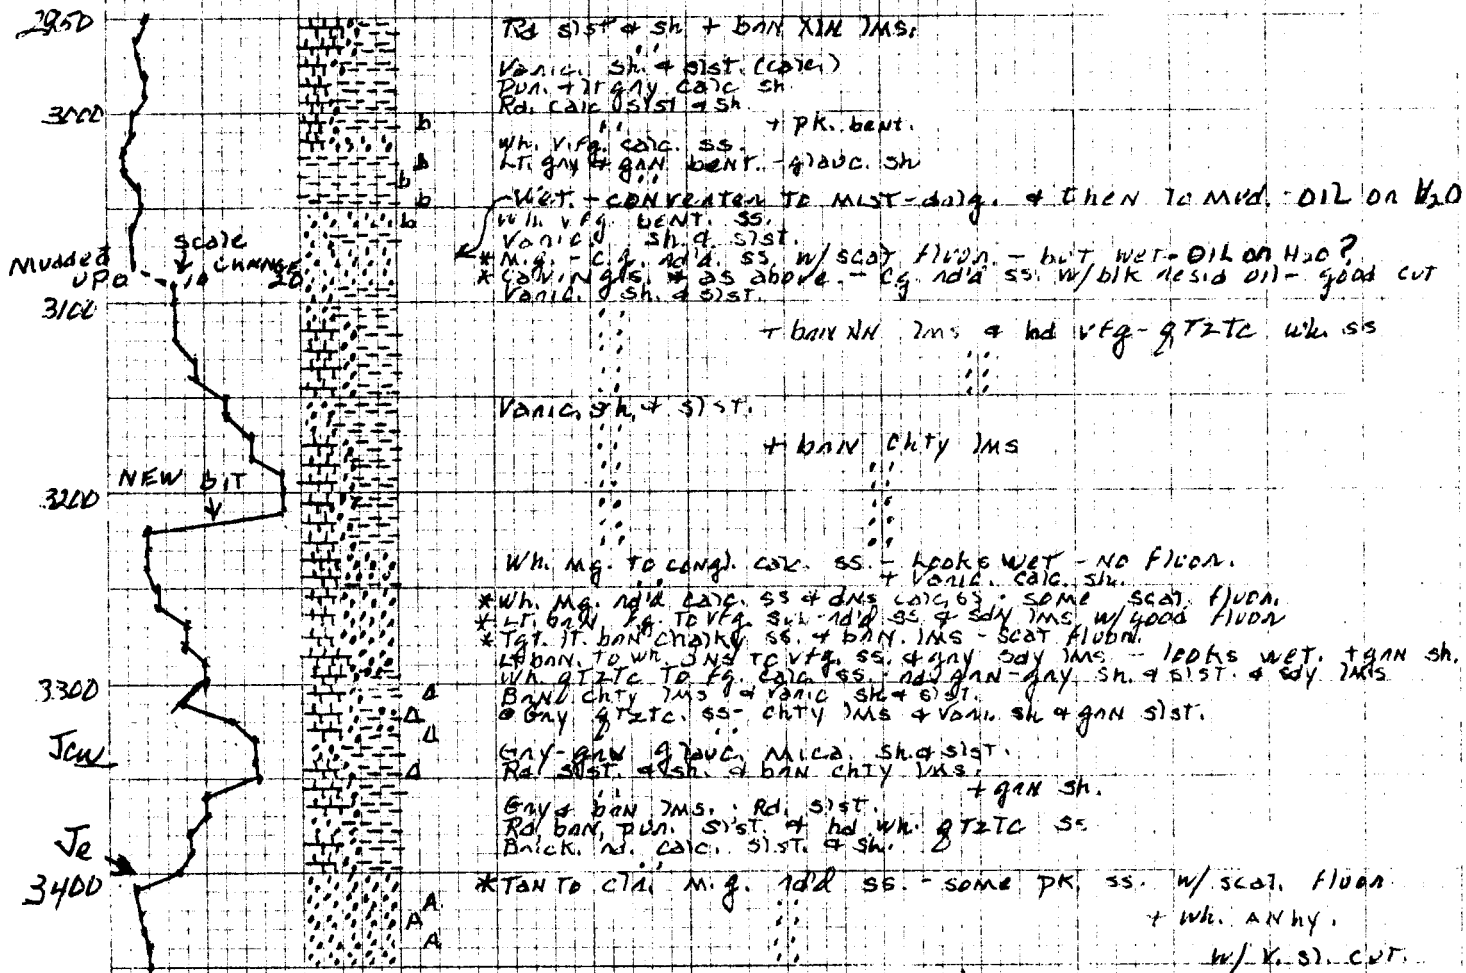 2950
Rd slst & sh + brn xln lms.
Varic. sh. & slst. (calc.)
Pur. + lt gry calc sh
Rd. calc slst & sh
3000
b
+ pk. bent.
Wh. vfg. calc. ss.
b
LT. gry & grn bent. - glauc. sh
b
b
Wet. - converted to mist - drlg. & then to mud. - OIL on H2O
b
Wh. vfg. bent. ss.
Varic. sh. & slst.
scale
Mudded
* M.g. - c.g. rd'd. ss. w/ scat fluor. - but wet - OIL on H2O?
up
0
10
CHANGE
20
* Calvings * as above. - cg rd'd ss. w/ blk resid oil - good cut
Varic. sh. & slst.
3100
+ brn xln lms & hd vfg - qtztc wh. ss
Varic. sh. & slst.
+ brn chty lms
NEW BIT
3200
Wh. mg. to congl. calc. ss. - Looks wet - No fluor.
+ varic. calc. sh.
* Wh. mg. rd'd calc. ss & dns calc. ss - some scat. fluor.
* LT. brn fg. to vfg. sub-rd'd ss & sdy lms w/ good fluor
* Tgt. lt. brn chalky ss. & brn. lms - scat fluor.
Lt brn. to wh. dns to vfg. ss. & gry sdy lms - looks wet. + grn sh.
3300
Wh qtztc to fg. calc ss. - rd, grn-gry sh. & slst. & sdy lms
Brn chty lms & varic sh & slst.
Gry qtztc. ss - chty lms & vari. sh & grn slst.
Jcw
Gry-grn glauc. mica. sh. & slst.
Rd slst. & sh. & brn chty lms.
+ grn sh.
Gry & brn lms. Rd. slst.
Rd, brn, pur. slst. & hd wh. qtztc ss
Brick. rd. calc. slst. & sh.
Je
3400
* Tan to clr. m.g. rd'd ss. - some pk. ss. w/ scat. fluor
A
+ wh. anhy.
A
A
w/ v. sl. cut.